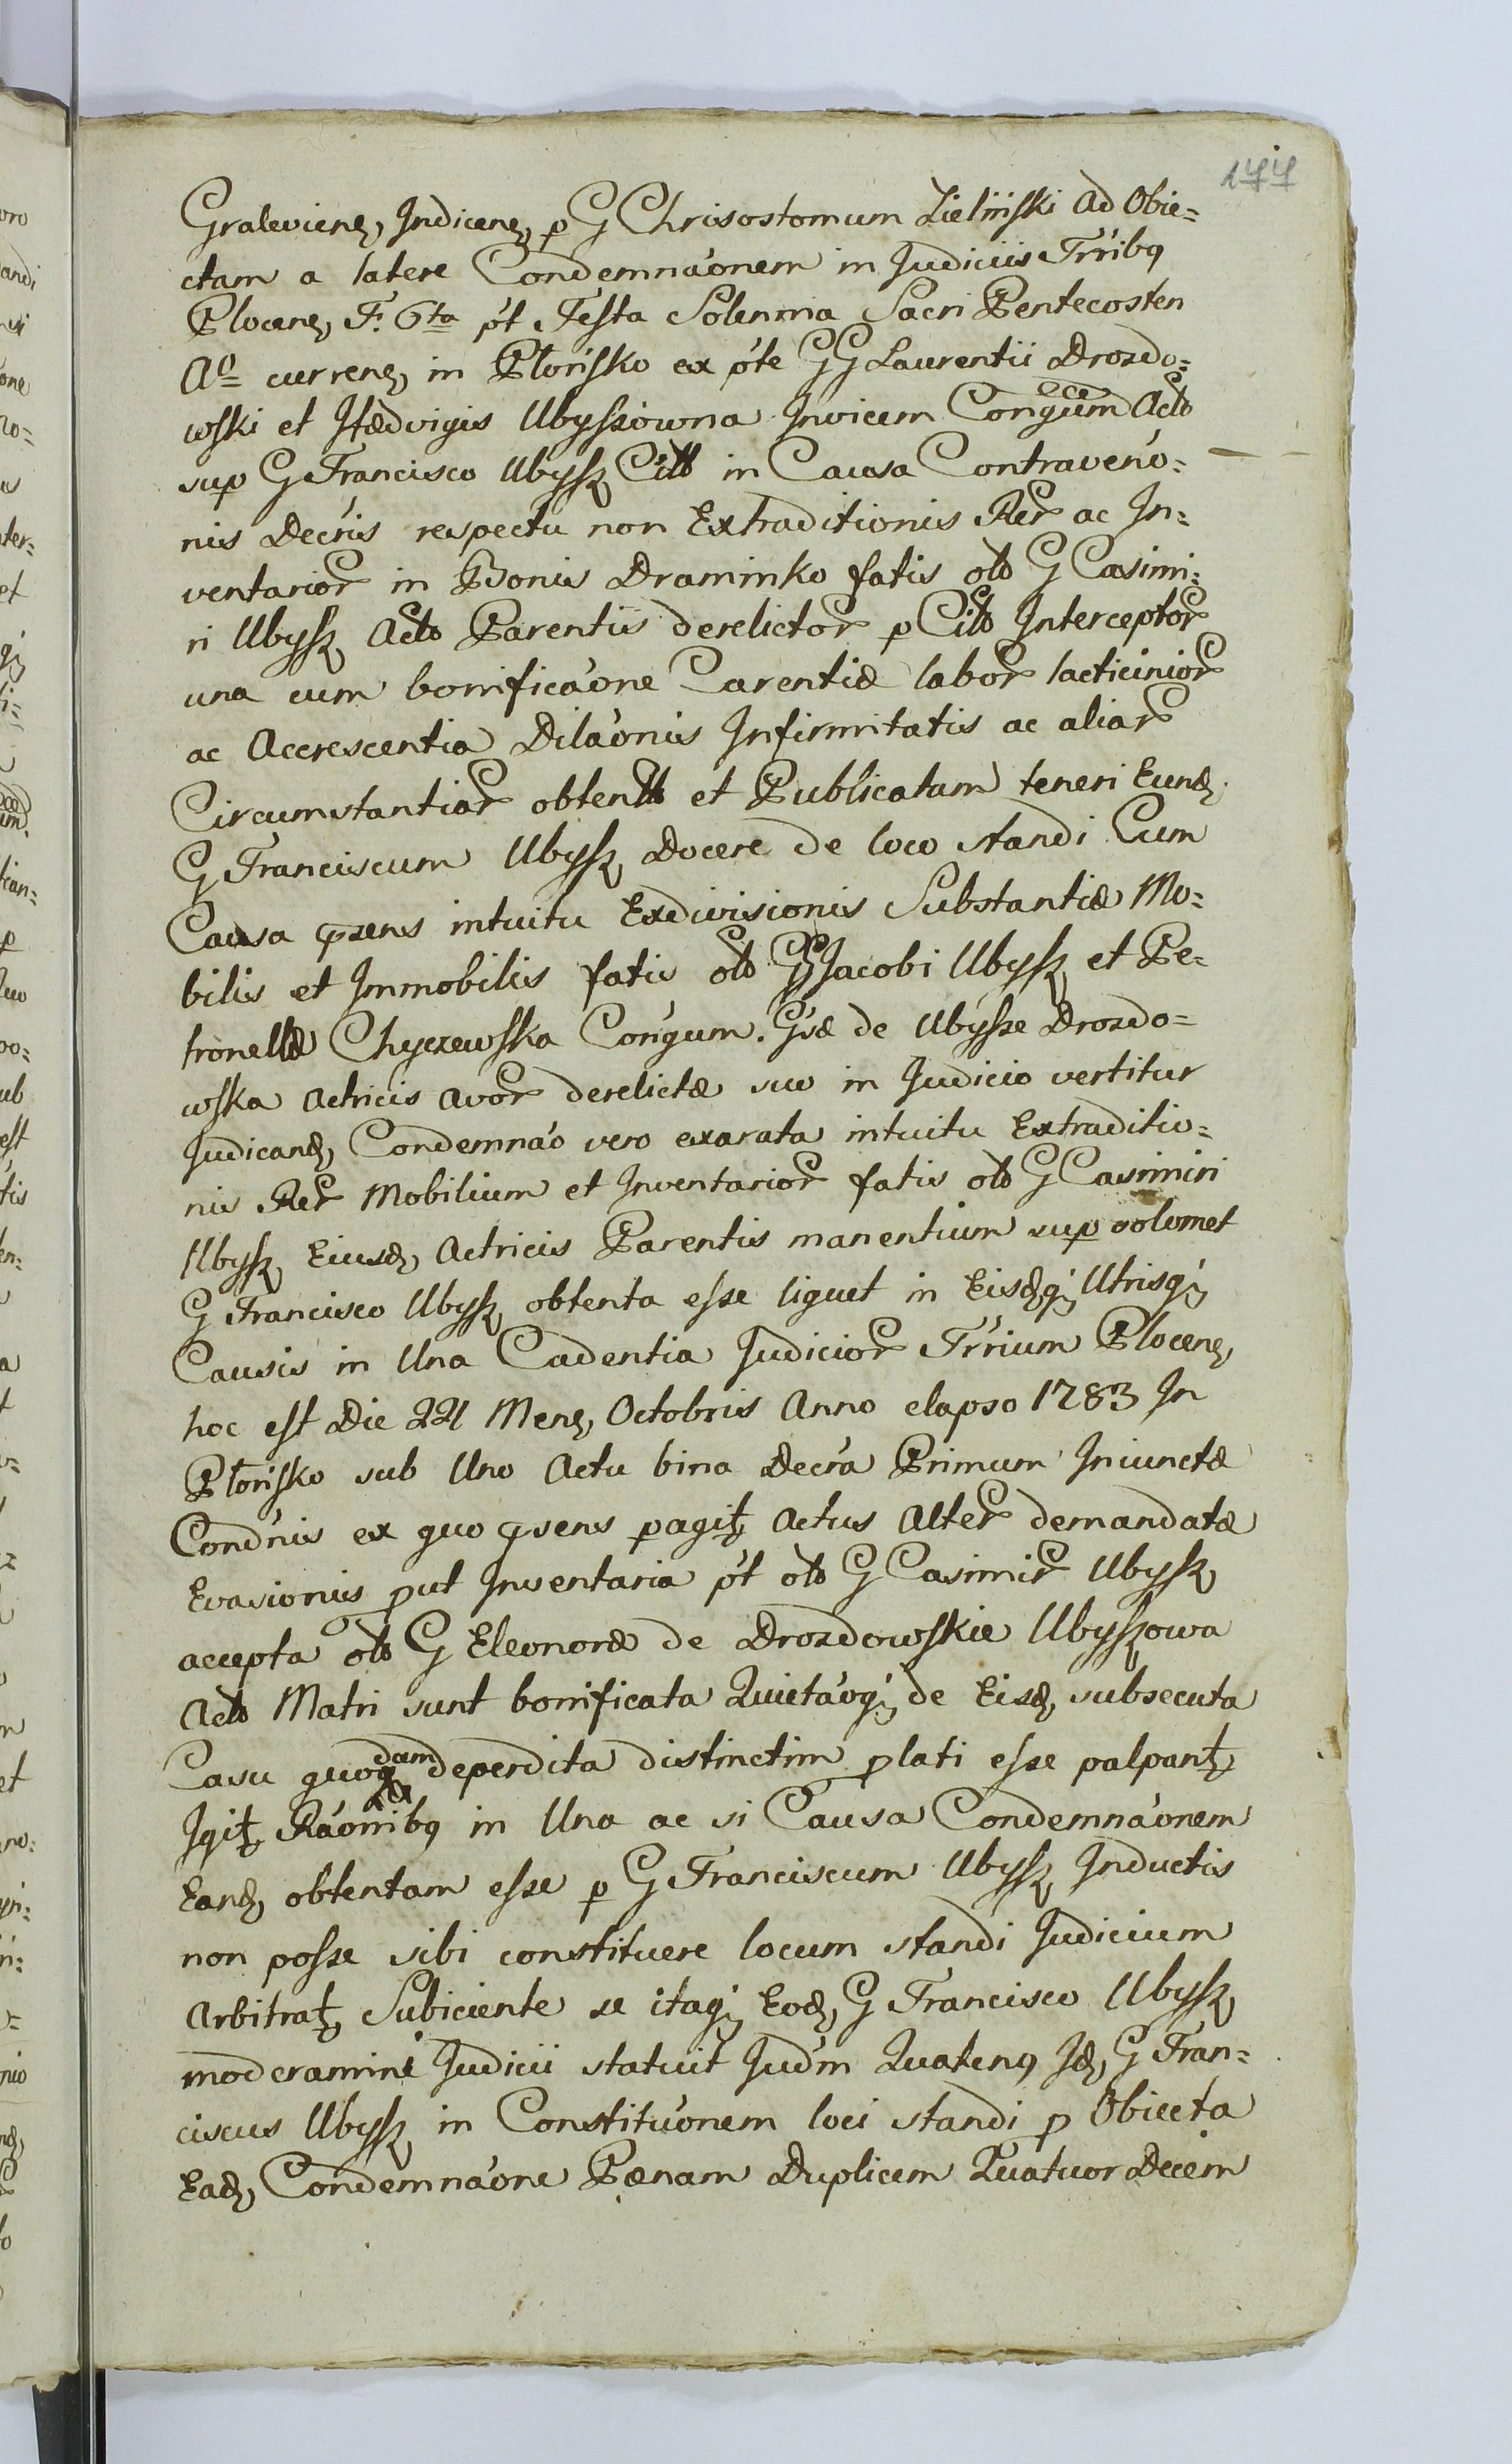 177
Graleviens, Indicens, p G Chrisostomum Zieliński Ad Obie=
ctam a latere Condemnáonem in Judiciis Trribq
Plocens, F. 6ta pt Festa Solennia Sacri Pentecosten
Ao currens, in Płońsko ex pte GG Laurentii Drozdo=
wski et Hedvigis Ubyszowna Invicem Congum Acto
sup G Francisco Ubysz Citto in Causa Contraveno=
nis Decris respectu non Extraditionis Rer ac In=
ventarior in Bonis Draminko fatis olo G Casimi=
ri Ubysz Acto Parentis derelictor p Cito Interceptor
una cum bonificáone Carentiæ labor lacticinior
ac Accrescentia Diláonis Infirmitatis ac aliar
Circumstantiar obtentt et Publicatam teneri Eund,
G Franciscum Ubysz Docere de loco standi Cum
Causa pzens intuitu Exdivisionis Substantiæ Mo=
bilis et Immobilis fatis olo GG Jacobi Ubysz et Pe=
tronellæ Chyczewska Congum. Gsæ de Ubysze Drozdo=
wska Actricis Avor derelictæ suo in Judicio vertitur
Judicand, Condemnáo vero exarata intuitu Extraditio=
nis Rer Mobilium et Inventarior fatis olo G Casimiri
Ubysz Eiusd, Actricis Parentis manentium sup solomet
G Francisco Ubysz obtenta esse liquet in Eisdq, Utrisq,
Causis in Una Cadentia Judicior Trrium Plocens,
hoc est Die 22 Mens, Octobris Anno elapso 1783 In
Płońsko sub Uno Actu bina Decra Primum Iniunctæ
Condnis ex quo psens pagit, Actus Alter demandatæ
Evasionis put Inventaria pt olo G Casimir Ubysz
accepta olo G Eleonoræ de Drozdowskie Ubyszowa
Acto Matri sunt bonificata Quietáoq, de Eisd, subsecuta
Casu quoqdam deperdita distinctim plati esse palpant,
Igit, Ráonibq in Una ac si Causa Condemnáonem
Eand, obtentam esse p G Franciscum Ubysz Inductis
non posse sibi constituere locum standi Judicium
Arbitrat, Subiciente se itaq, Eod, G Francisco Ubysz
moderamini Judicii statuit Judm Quatenq Id, G Fran=
ciscus Ubysz in Constitúonem loci standi p Obiecta
Ead, Condemnáone Pænam Duplicem Quatuor Decem